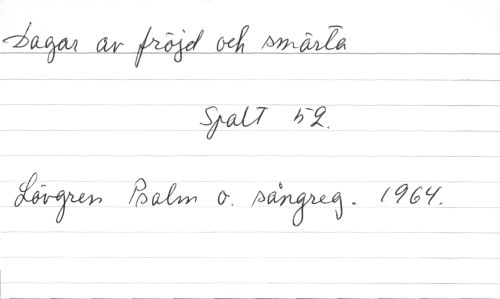 Dagar av fröjd och smärta
Spalt 52.
Lövgren Psalm o. sångreg. 1964.